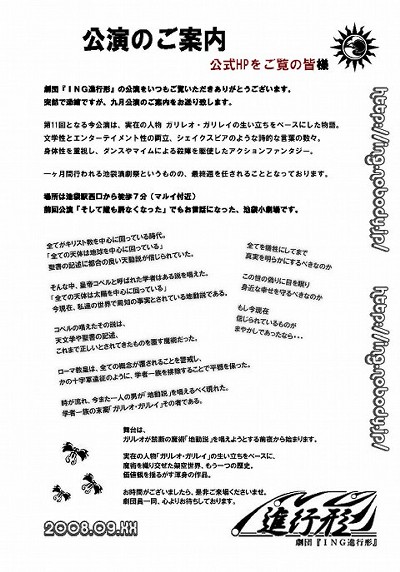 公演のご案内
公式HPをご覧の皆様
劇団『ING進行形』の公演をいつもご覧いただきありがとうございます。
突然で恐縮ですが、九月公演のご案内をお送り致します。
第11回となる今公演は、実在の人物 ガリレオ・ガリレイの生い立ちをベースにした物語。
文学性とエンターテイメント性の両立、シェイクスピアのような詩的な言葉の数々。
身体性を重視し、ダンスやマイムによる殺陣を駆使したアクションファンタジー。
一ヶ月間行われる池袋演劇祭というものの、最終週を任されることとなっております。
場所は池袋駅西口から徒歩7分（マルイ付近）
前回公演「そして誰も居なくなった」でもお世話になった、池袋小劇場です。
全てがキリスト教を中心に回っている時代。
「全ての天体は地球を中心に回っている」
聖書の記述に都合の良い天動説が信じられていた。
そんな中、皇帝コペルと呼ばれた学者はある説を唱えた。
「全ての天体は太陽を中心に回っている」
今現在、私達の世界で周知の事実とされている地動説である。
コペルの唱えたその説は、
天文学や聖書の記述、
これまで正しいとされてきたものを覆す魔術だった。
ローマ教皇は、全ての概念が覆されることを警戒し、
かの十字軍遠征のように、学者一族を排除することで平穏を保った。
時が流れ、今また一人の男が「地動説」を唱えるべく現れた。
学者一族の末裔「ガリレオ・ガルレイ」その者である。
全てを犠牲にしてまで
真実を明らかにするべきなのか
この世の偽りに目を瞑り
身近な幸せを守るべきなのか
もし今現在
信じられているものが
まやかしであったなら・・・
舞台は、
ガリレオが禁断の魔術「地動説」を唱えようとする前夜から始まります。
実在の人物「ガリレオ・ガリレイ」の生い立ちをベースに、
魔術を織り交ぜた架空世界、もう一つの歴史。
価値観を揺るがす渾身の作品。
お時間がございましたら、是非ご来場くださいませ。
劇団員一同、心よりお待ちしております。
2008.09.XX
進行形
劇団『ING進行形』
http://ing.nobody.jp/
http://ing.nobody.jp/